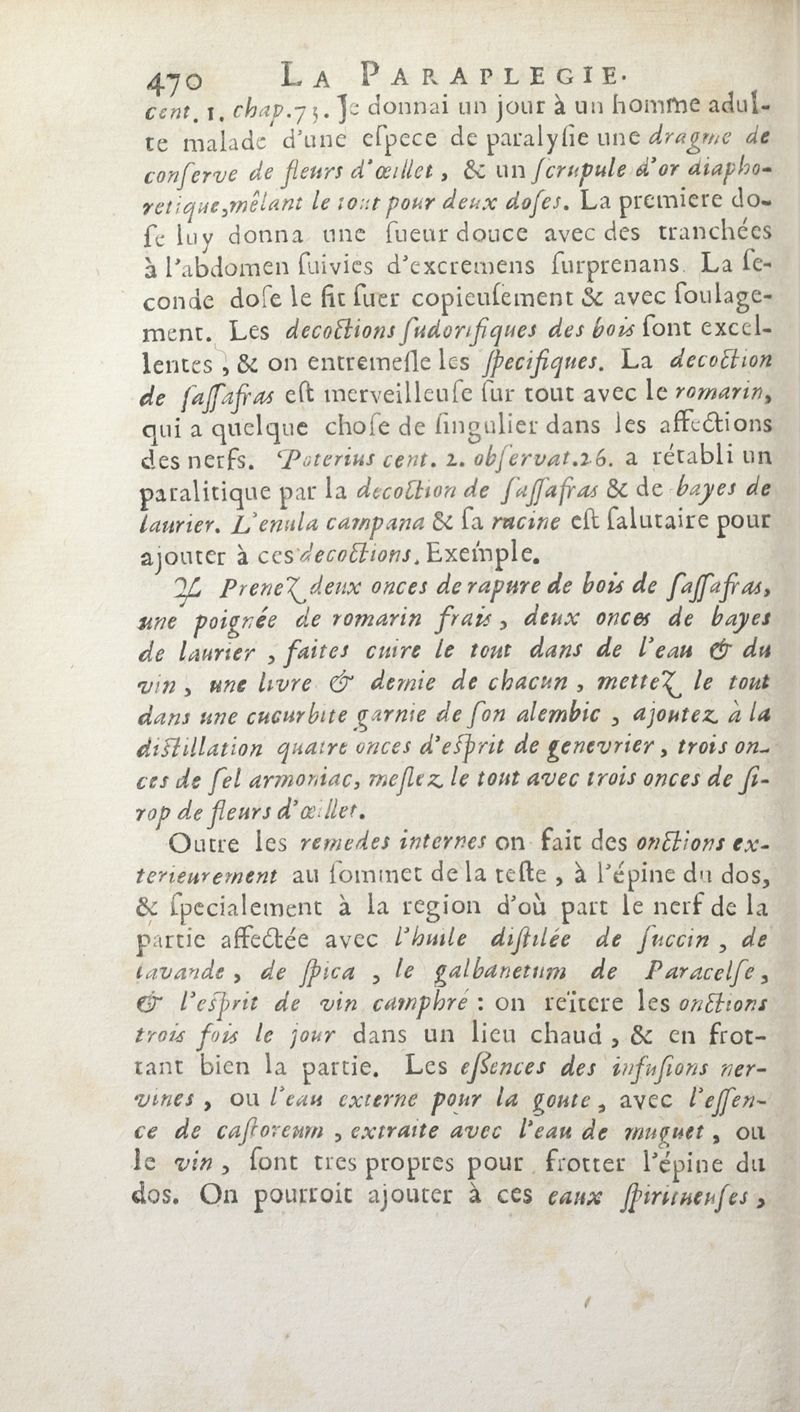 470 LA PARAPLEGIE.
cent. 1. chap. 73. Je donnai un jour à un homme adul-
te malade d'une eſpece de paralyſie une dragme de
conſerve de fleurs d'œillet, & un ſcrupule d'or diapho-
retique, mêlant le tout pour deux doſes. La premiere do-
ſe luy donna une ſueur douce avec des tranchées
à l'abdomen ſuivies d'excremens ſurprenans. La ſe-
conde doſe le fit ſuer copieuſement & avec ſoulage-
ment. Les decoctions ſudorifiques des bois ſont excel-
lentes, & on entremeſle les ſpecifiques. La decoction
de ſaſſafras eſt merveilleuſe ſur tout avec le romarin,
qui a quelque choſe de ſingulier dans les affections
des nerfs. Poterius cent. 2. obſervat. 26. a rétabli un
paralitique par la decoction de ſaſſafras & de bayes de
laurier. L'enula campana & ſa racine eſt ſalutaire pour
ajouter à ces decoctions. Exemple.
℞ Prenez deux onces de rapure de bois de ſaſſafras,
une poignée de romarin frais, deux onces de bayes
de laurier, faites cuire le tout dans de l'eau & du
vin, une livre & demie de chacun, mettez le tout
dans une cucurbite garnie de ſon alembic, ajoutez à la
diſtillation quatre onces d'eſprit de genevrier, trois on-
ces de ſel armoniac, meſlez le tout avec trois onces de ſi-
rop de fleurs d'œillet.
Outre les remedes internes on fait des onctions ex-
terieurement au ſommet de la teſte, à l'épine du dos,
& ſpecialement à la region d'où part le nerf de la
partie affectée avec l'huile diſtilée de ſuccin, de
lavande, de ſpica, le galbanetum de Paracelſe,
& l'eſprit de vin camphré : on reïtere les onctions
trois fois le jour dans un lieu chaud, & en frot-
tant bien la partie. Les eſſences des infuſions ner-
vines, ou l'eau externe pour la goute, avec l'eſſen-
ce de caſtoreum, extraite avec l'eau de muguet, ou
le vin, ſont tres propres pour frotter l'épine du
dos. On pourroit ajouter à ces eaux ſpiritueuſes,